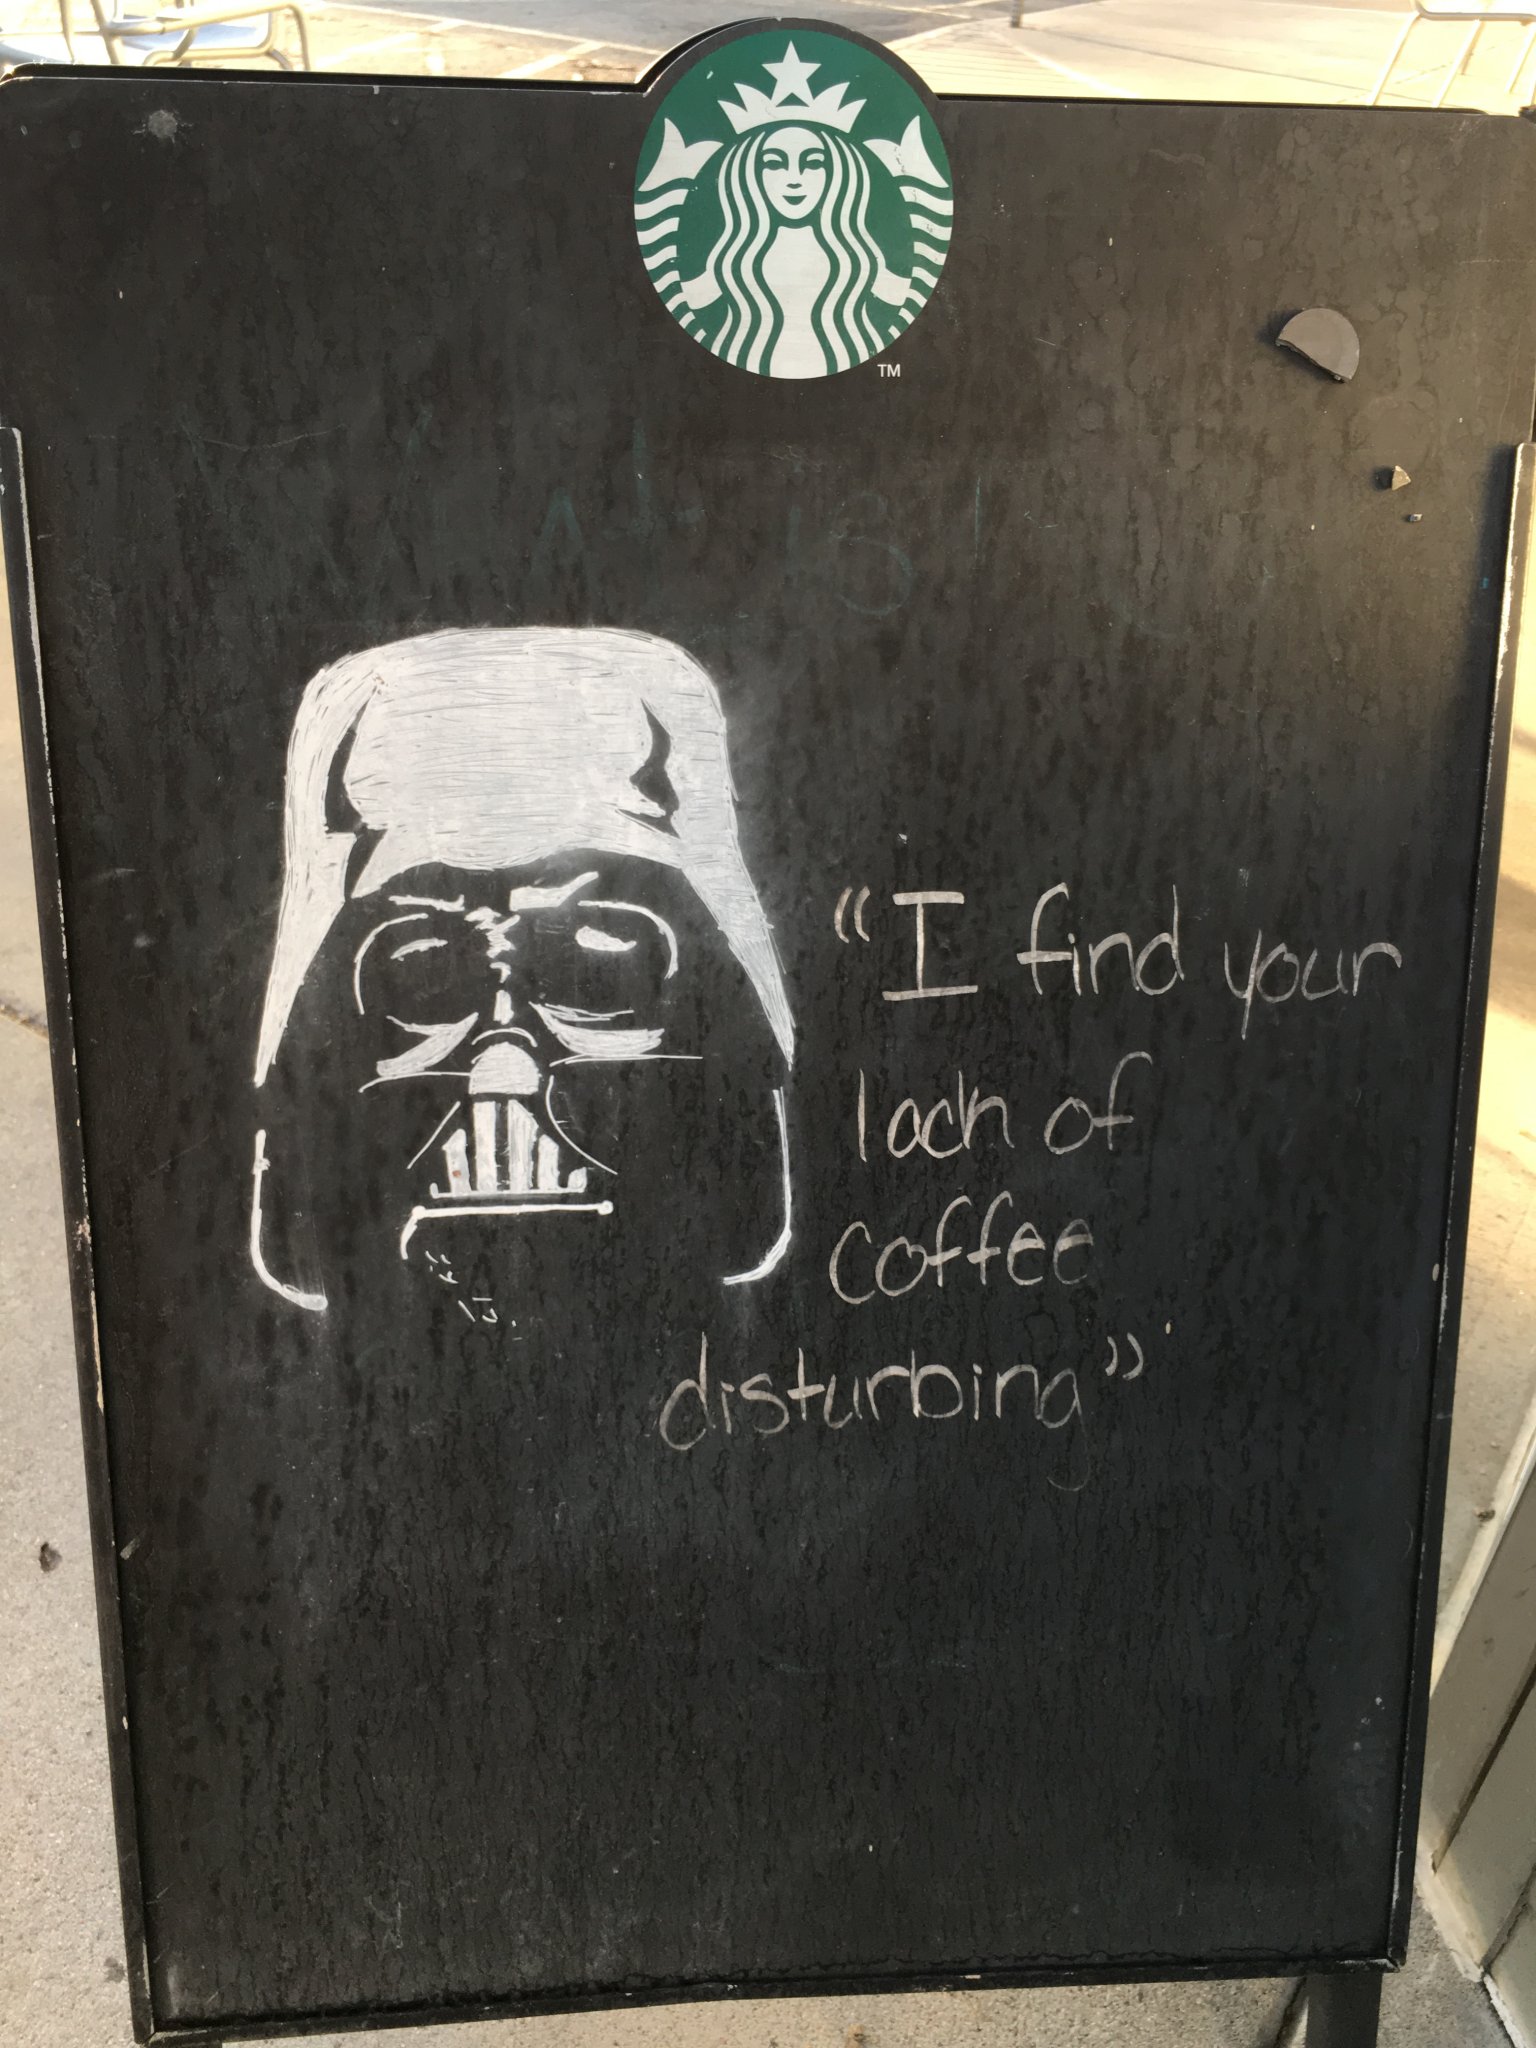 TM
“I find your
lack of
coffee
disturbing”